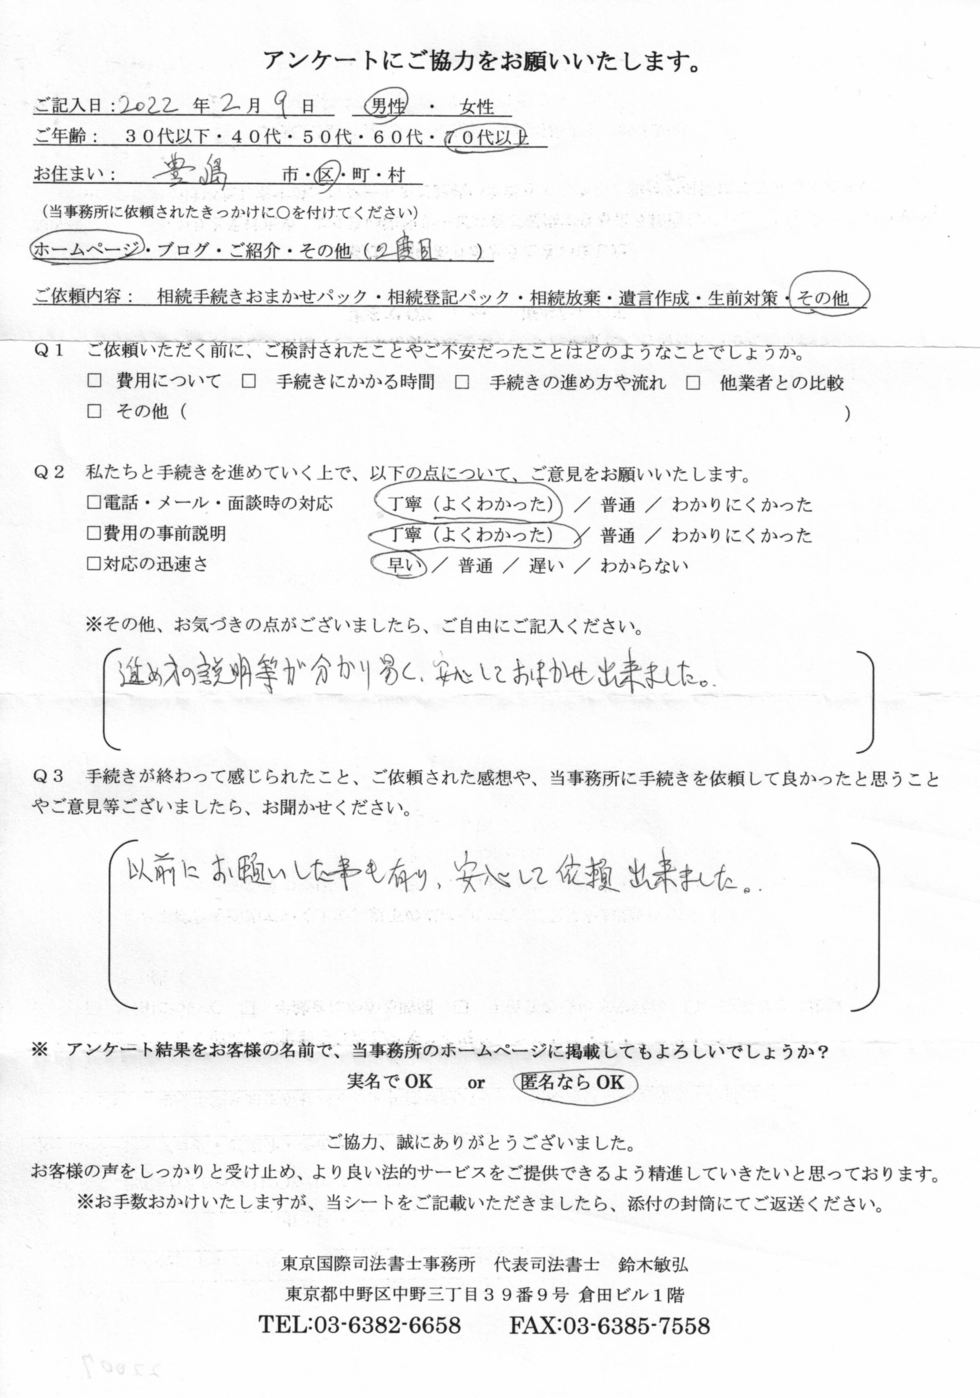 アンケートにご協力をお願いいたします。
ご記入日：2022 年 2 月 9 日 男性 ・ 女性
ご年齢： 30代以下・40代・50代・60代・70代以上
お住まい： 豊島 市・区・町・村
（当事務所に依頼されたきっかけに○を付けてください）
ホームページ・ブログ・ご紹介・その他（2度目 ）
ご依頼内容： 相続手続きおまかせパック・相続登記パック・相続放棄・遺言作成・生前対策・その他
Q1 ご依頼いただく前に、ご検討されたことやご不安だったことはどのようなことでしょうか。
□ 費用について □ 手続きにかかる時間 □ 手続きの進め方や流れ □ 他業者との比較
□ その他（ ）
Q2 私たちと手続きを進めていく上で、以下の点について、ご意見をお願いいたします。
□電話・メール・面談時の対応 丁寧（よくわかった） ／ 普通 ／ わかりにくかった
□費用の事前説明 丁寧（よくわかった） ／ 普通 ／ わかりにくかった
□対応の迅速さ 早い ／ 普通 ／ 遅い ／ わからない
※その他、お気づきの点がございましたら、ご自由にご記入ください。
進め方の説明等が分かり易く、安心しておまかせ出来ました。
Q3 手続きが終わって感じられたこと、ご依頼された感想や、当事務所に手続きを依頼して良かったと思うこと
やご意見等ございましたら、お聞かせください。
以前にお願いした事も有り、安心して依頼出来ました。
※ アンケート結果をお客様の名前で、当事務所のホームページに掲載してもよろしいでしょうか？
実名でOK or 匿名ならOK
ご協力、誠にありがとうございました。
お客様の声をしっかりと受け止め、より良い法的サービスをご提供できるよう精進していきたいと思っております。
※お手数おかけいたしますが、当シートをご記載いただきましたら、添付の封筒にてご返送ください。
東京国際司法書士事務所 代表司法書士 鈴木敏弘
東京都中野区中野三丁目39番9号 倉田ビル1階
TEL:03-6382-6658 FAX:03-6385-7558